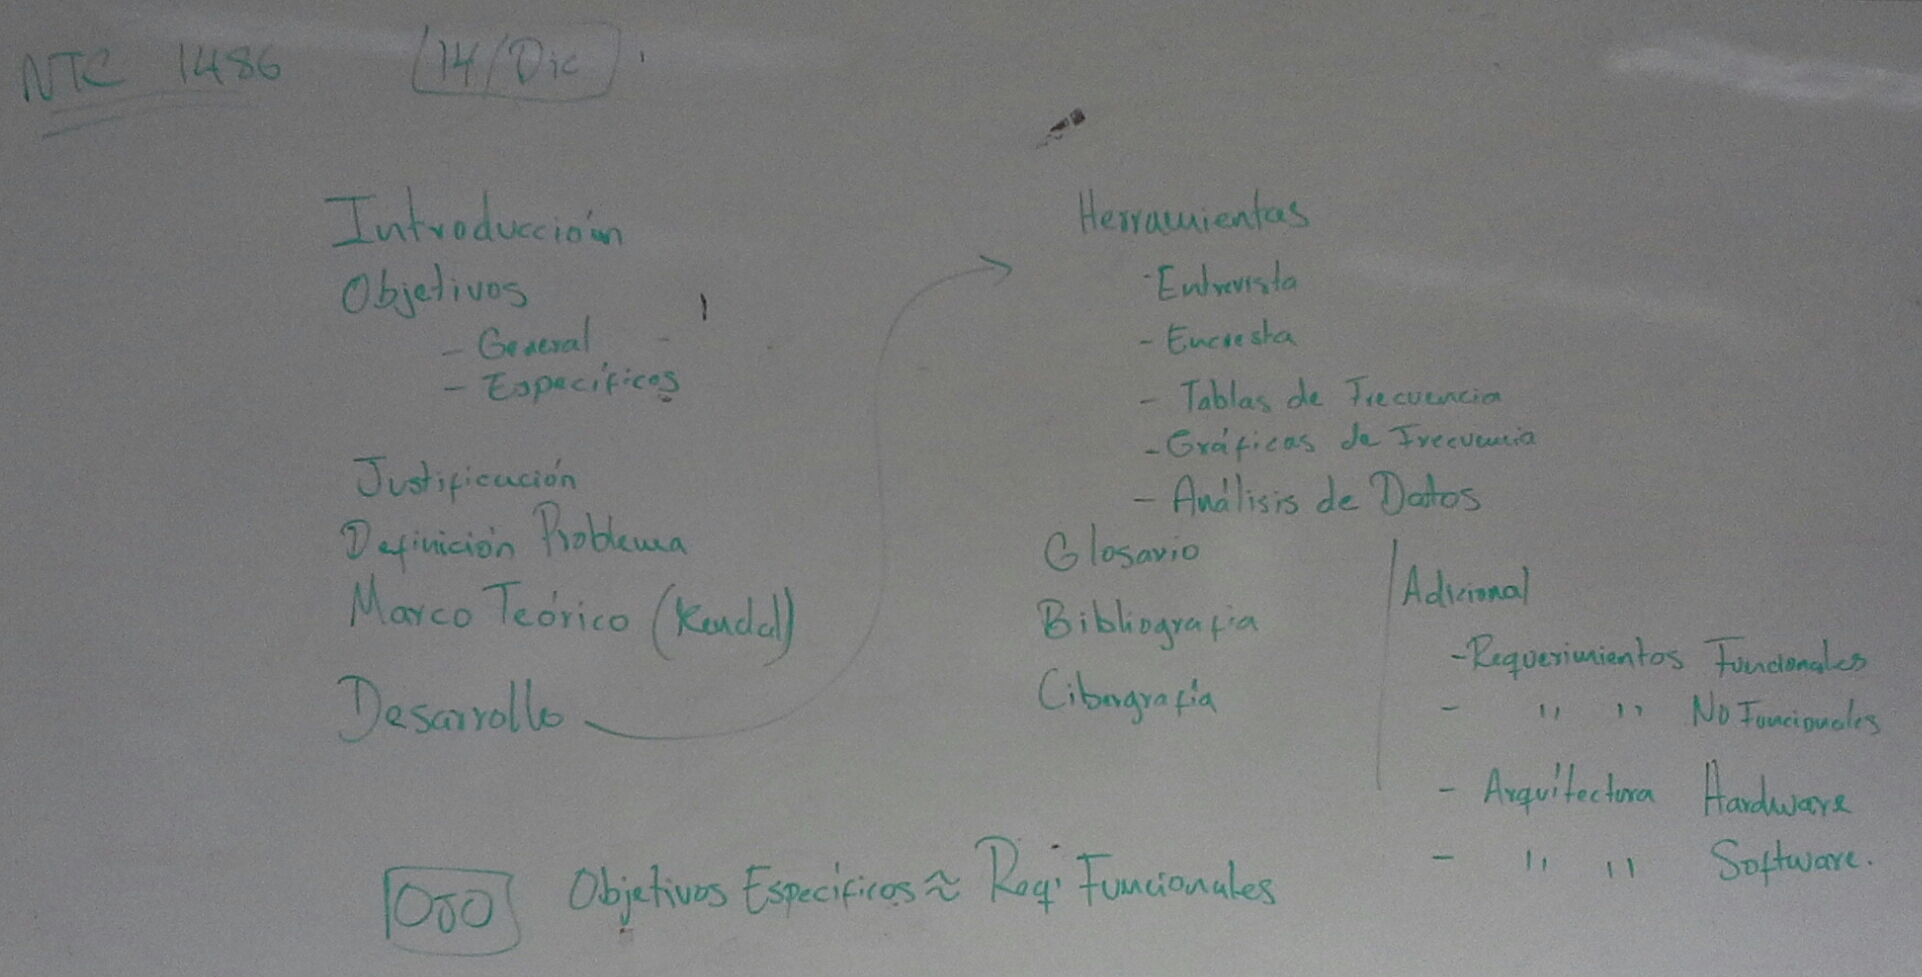 NTC 1486 14/Dic
Introducción
Objetivos
- General
- Específicos
Justificación
Definición Problema
Marco Teórico (Kendal)
Desarrollo
Herramientas
- Entrevista
- Encuesta
- Tablas de Frecuencia
- Gráficas de Frecuencia
- Análisis de Datos
Glosario
Bibliografia
Cibergrafía
Adicional
- Requerimientos Funcionales
- " " No Funcionales
- Arquitectura Hardware
- " " Software.
OJO Objetivos Específicos ≈ Req. Funcionales